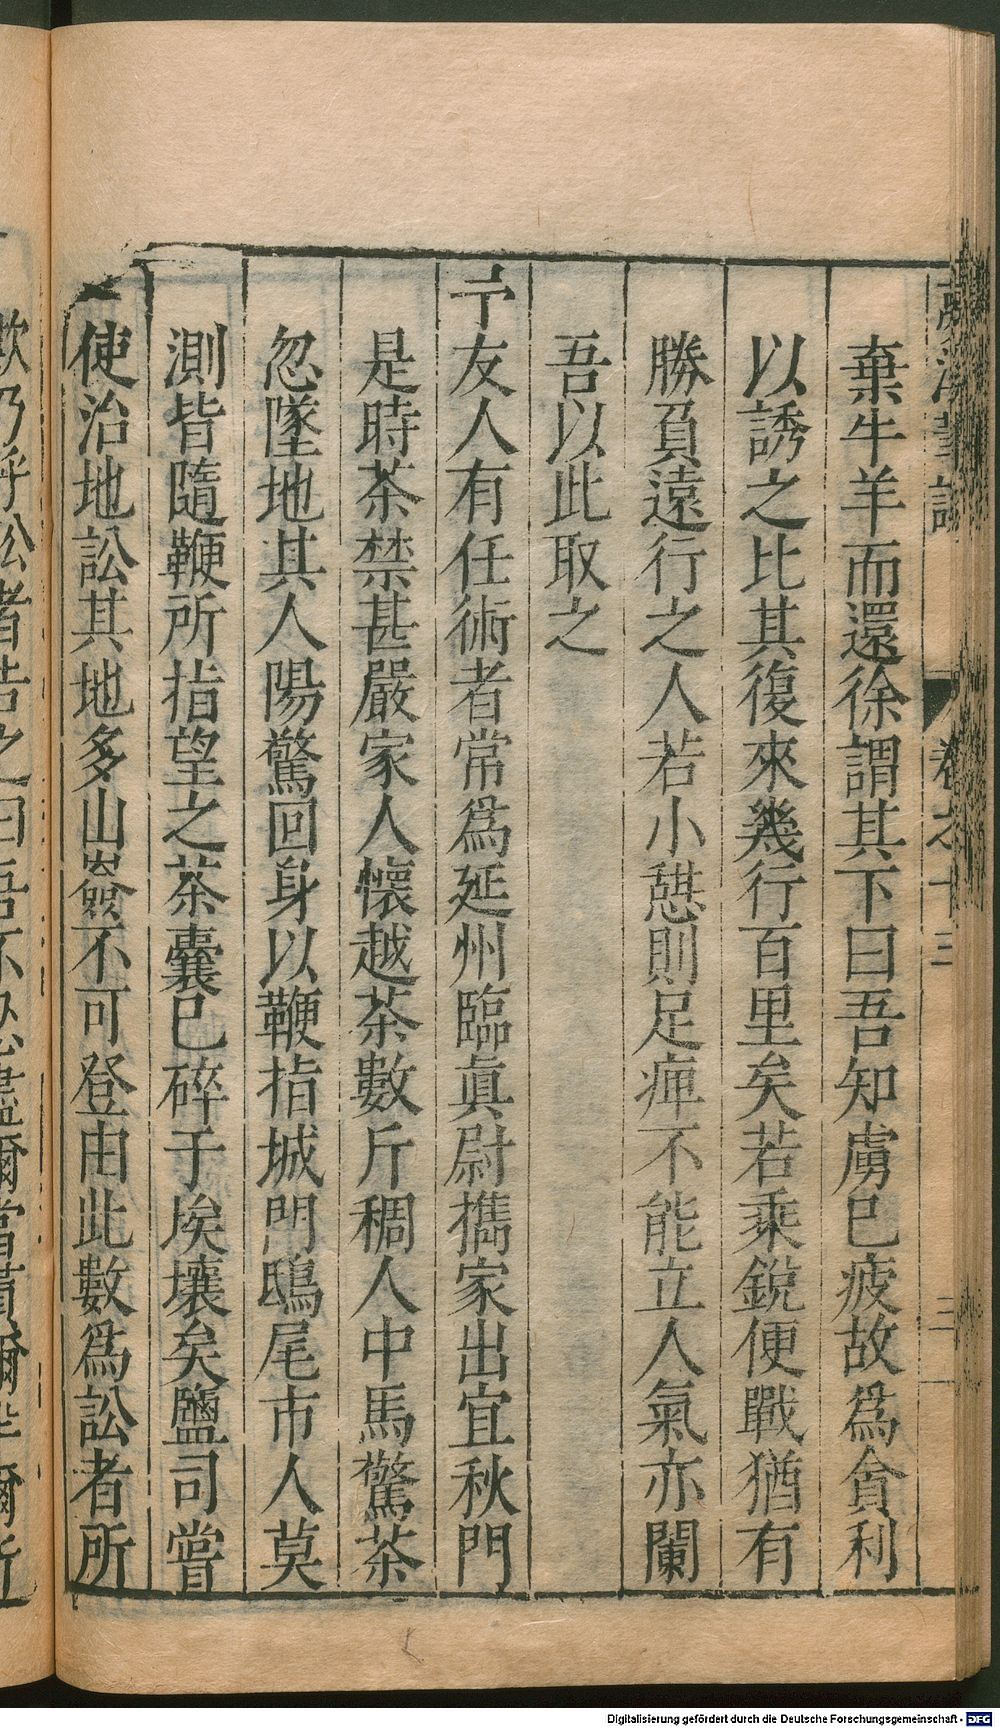 夢溪筆談 卷之十三 三
棄牛羊而還徐謂其下曰吾知虜已疲故爲貪利
以誘之比其復來幾行百里矣若乘銳便戰猶有
勝負遠行之人若小憇則足痺不能立人氣亦闌
吾以此取之
予友人有任術者常爲延州臨眞尉攜家出宜秋門
是時茶禁甚嚴家人懷越茶數斤稠人中馬驚茶
忽墜地其人陽驚回身以鞭指城門鴟尾市人莫
測皆隨鞭所指望之茶囊已碎于埃壤矣鹽司嘗
使治地訟其地多山嶮不可登由此數爲訟者所
欺乃呼訟者告之曰吾不忍盡爾當貰爾半爾所
Digitalisierung gefördert durch die Deutsche Forschungsgemeinschaft - DFG